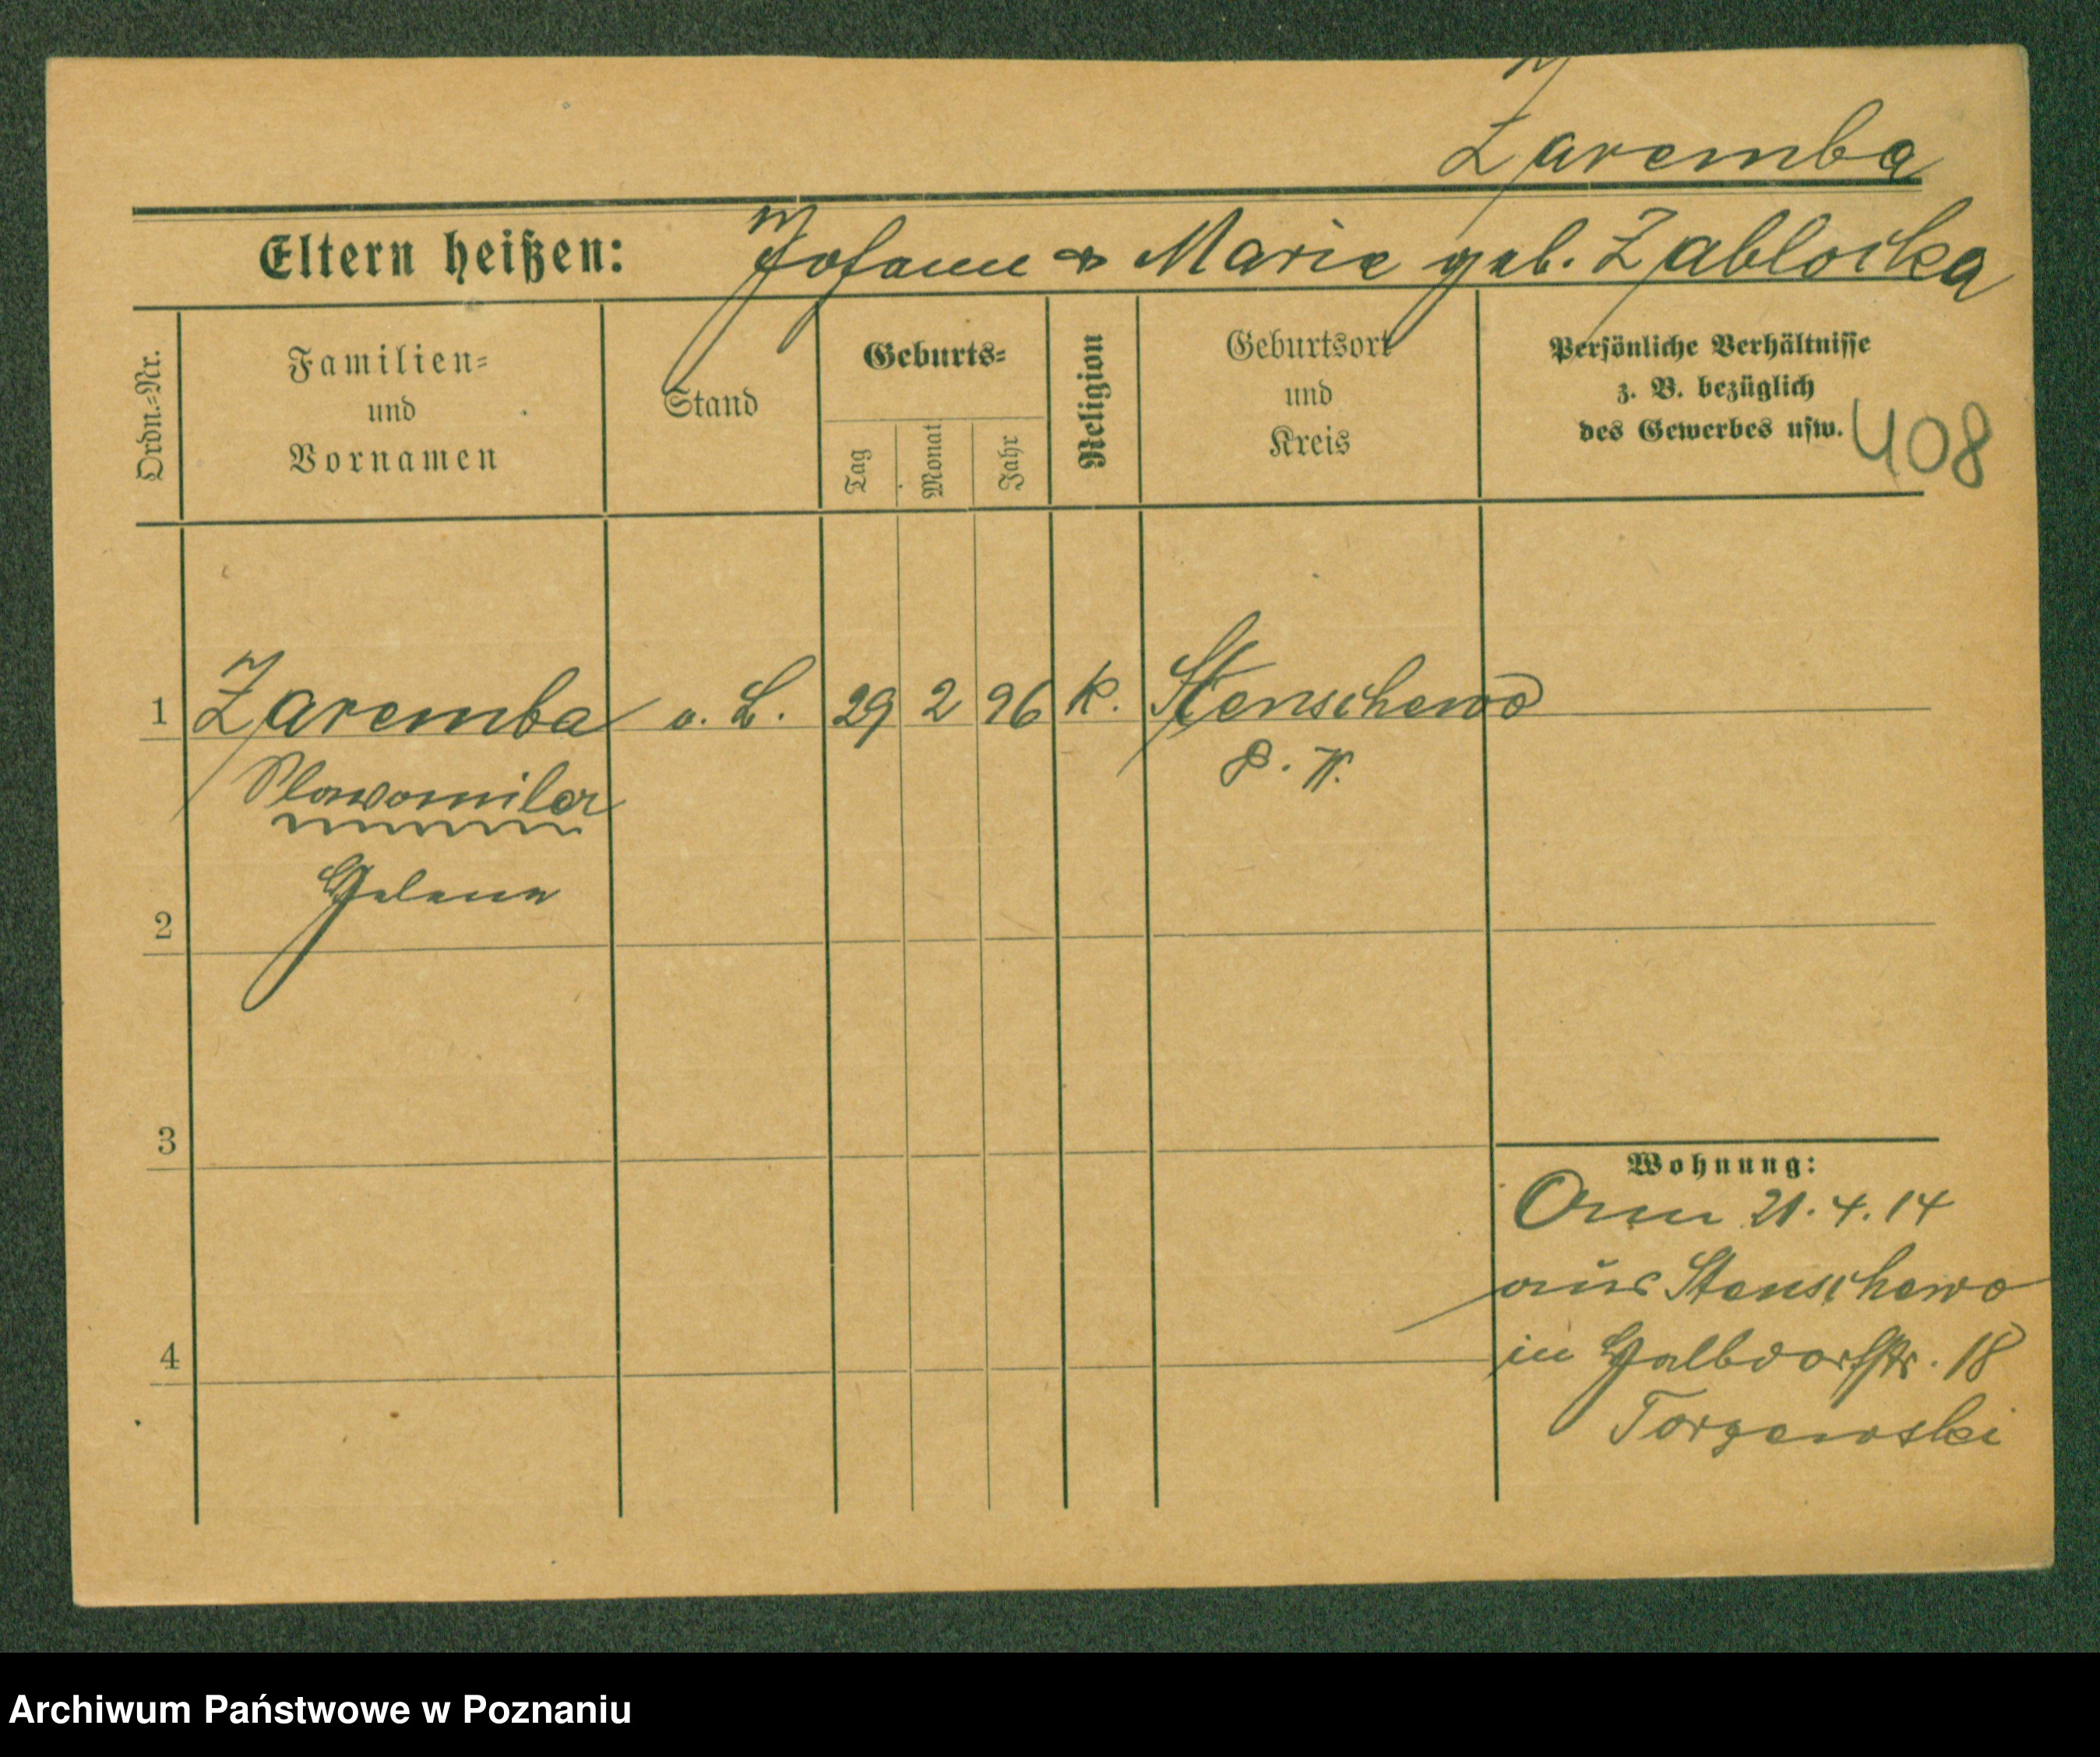 Zaremba
Eltern heißen: Johann & Marie geb. Zablocka
Ordn.-Nr.
Familien- und Vornamen
Stand
Geburts-
Tag
Monat
Jahr
Religion
Geburtsort und Kreis
Persönliche Verhältnisse
z. B. bezüglich
des Gewerbes usw.
408
1 Zaremba o. B. 29 2 96 k. Stenschewo
P. W.
Helene
2
3
4
Wohnung:
21.4.14
aus Stenschewo
in Halbdorfstr. 18
Torzewski
Archiwum Państwowe w Poznaniu